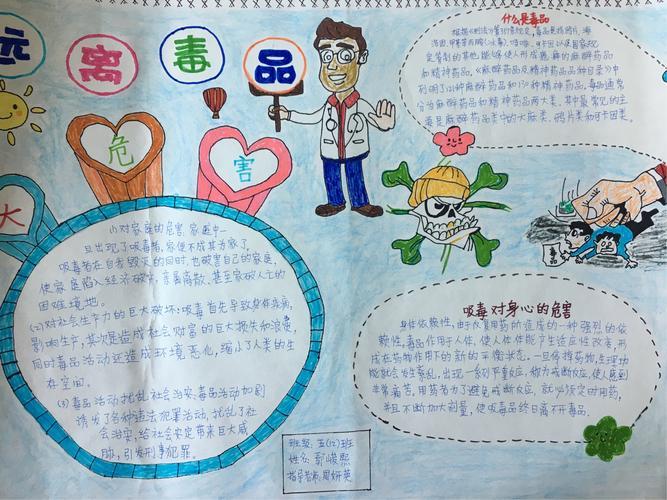 远离毒品
什么是毒品
根据《刑法》第357条规定,毒品是指鸦片、海
洛因、甲基苯丙胺(冰毒)、吗啡、可卡因以及国家规
定管制的其他能够使人形成瘾癖的麻醉药品
和精神药品。《麻醉药品及精神药品品种目录》中
列明了121种麻醉药品和130种精神药品。毒品通常
分为麻醉药品和精神药品两大类。其中最常见的主
要是麻醉药品类中的大麻类、鸦片类和可卡因类。
大
危
害
(1)对家庭的危害:家庭中一
旦出现了吸毒者,家便不成其为家了。
吸毒者在自我毁灭的同时,也破害自己的家庭,
使家庭陷入经济破产、亲属离散、甚至家破人亡的
困难境地。
(2)对社会生产力的巨大破坏:吸毒首先导致身体疾病,
影响生产,其次是造成社会财富的巨大损失和浪费,
同时毒品活动还造成环境恶化,缩小了人类的生
存空间。
(3)毒品活动扰乱社会治安:毒品活动加剧
诱发了各种违法犯罪活动,扰乱了社
会治安,给社会安定带来巨大威
胁,引发刑事犯罪。
毒品
吸毒对身心的危害
身体依赖性:由于反复用药所造成的一种强烈的依
赖性。毒品作用于人体,使人体体能产生适应性改变,形
成在药物作用下的新的平衡状态。一旦停掉药物,生理功
能就会发生紊乱,出现一系列严重反应,称为戒断反应,使人感到
非常痛苦。用药者为了避免戒断反应,就必须定时用药,
并且不断加大剂量,使吸毒品终日离不开毒品。
班级:五(12)班
姓名:郭峻熙
指导老师:周妍英